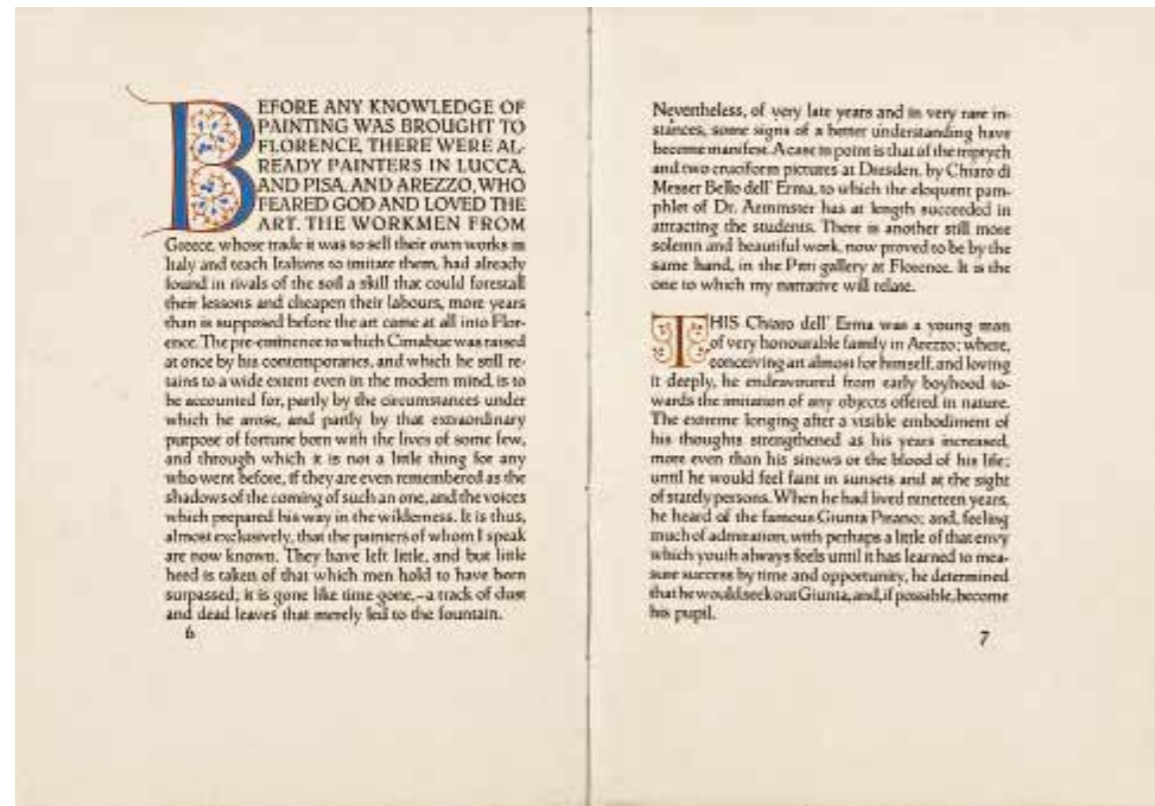 BEFORE ANY KNOWLEDGE OF
PAINTING WAS BROUGHT TO
FLORENCE, THERE WERE AL-
READY PAINTERS IN LUCCA,
AND PISA, AND AREZZO, WHO
FEARED GOD AND LOVED THE
ART. THE WORKMEN FROM
Greece, whose trade it was to sell their own works in
Italy and teach Italians to imitate them, had already
found in rivals of the soil a skill that could forestall
their lessons and cheapen their labours, more years
than is supposed before the art came at all into Flor-
ence. The pre-eminence to which Cimabue was raised
at once by his contemporaries, and which he still re-
tains to a wide extent even in the modern mind, is to
be accounted for, partly by the circumstances under
which he arose, and partly by that extraordinary
purpose of fortune born with the lives of some few,
and through which it is not a little thing for any
who went before, if they are even remembered as the
shadows of the coming of such an one, and the voices
which prepared his way in the wilderness. It is thus,
almost exclusively, that the painters of whom I speak
are now known. They have left little, and but little
heed is taken of that which men hold to have been
surpassed; it is gone like time gone,–a track of dust
and dead leaves that merely led to the fountain.
6
Nevertheless, of very late years and in very rare in-
stances, some signs of a better understanding have
become manifest. A case in point is that of the triptych
and two cruciform pictures at Dresden, by Chiaro di
Messer Bello dell' Erma, to which the eloquent pam-
phlet of Dr. Aemmster has at length succeeded in
attracting the students. There is another still more
solemn and beautiful work, now proved to be by the
same hand, in the Pitti gallery at Florence. It is the
one to which my narrative will relate.
THIS Chiaro dell' Erma was a young man
of very honourable family in Arezzo; where,
conceiving art almost for himself, and loving
it deeply, he endeavoured from early boyhood to-
wards the imitation of any objects offered in nature.
The extreme longing after a visible embodiment of
his thoughts strengthened as his years increased,
more even than his sinews or the blood of his life;
until he would feel faint in sunsets and at the sight
of stately persons. When he had lived nineteen years,
he heard of the famous Giunta Pisano; and, feeling
much of admiration, with perhaps a little of that envy
which youth always feels until it has learned to mea-
sure success by time and opportunity, he determined
that he would seek out Giunta, and, if possible, become
his pupil.
7